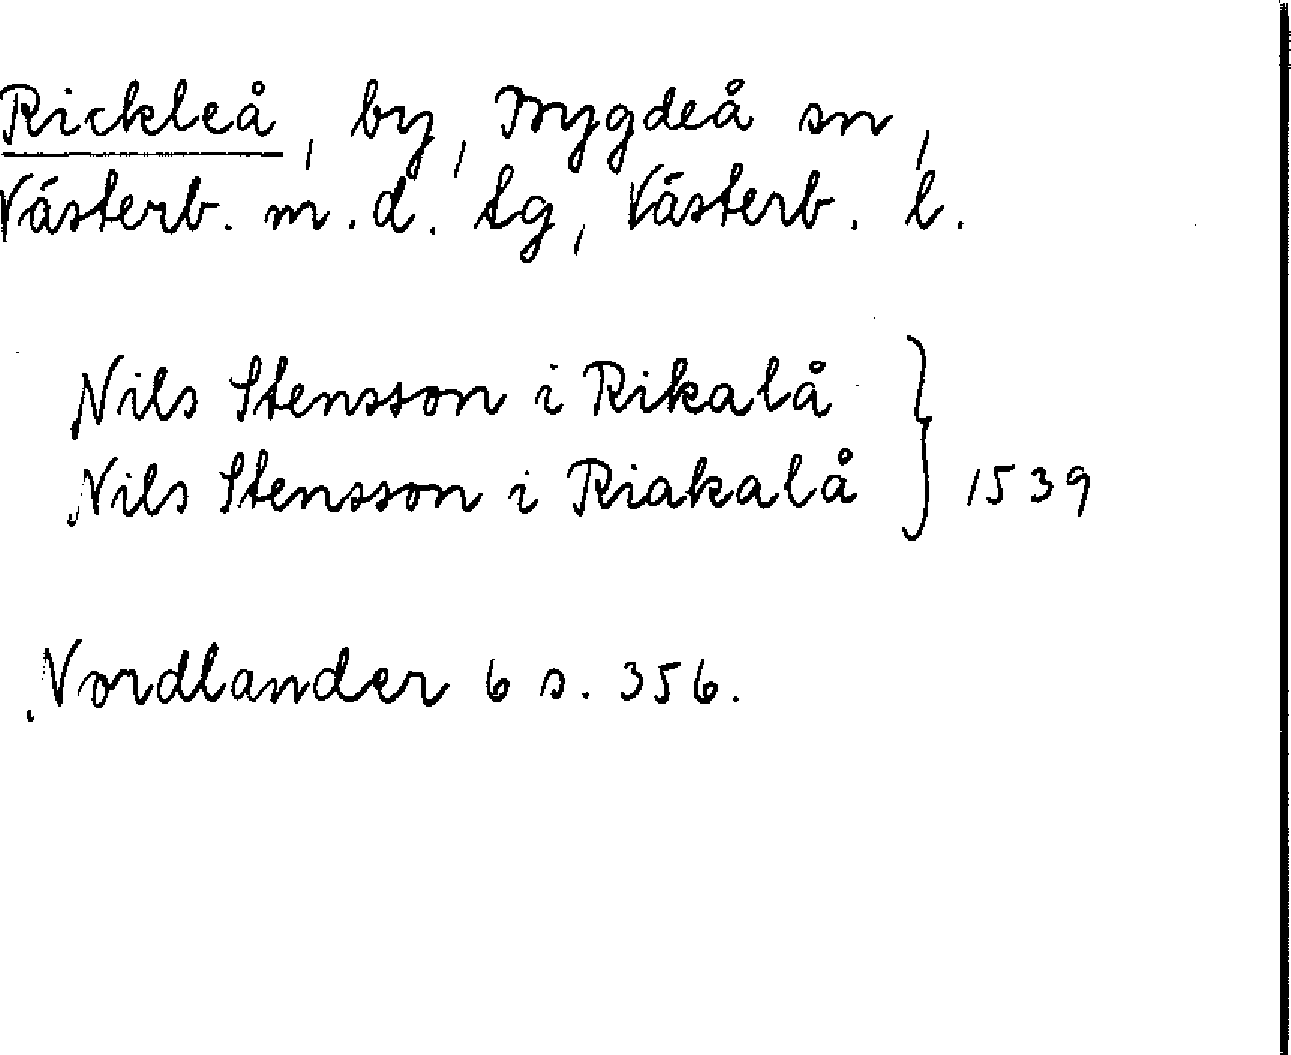 Rickleå, by, Bygdeå sn,
Västerb. m. d. tg, Västerb. l.
Nils Stensson i Rikalå
Nils Stensson i Riakalå } 1539
Nordlander 6 s. 356.